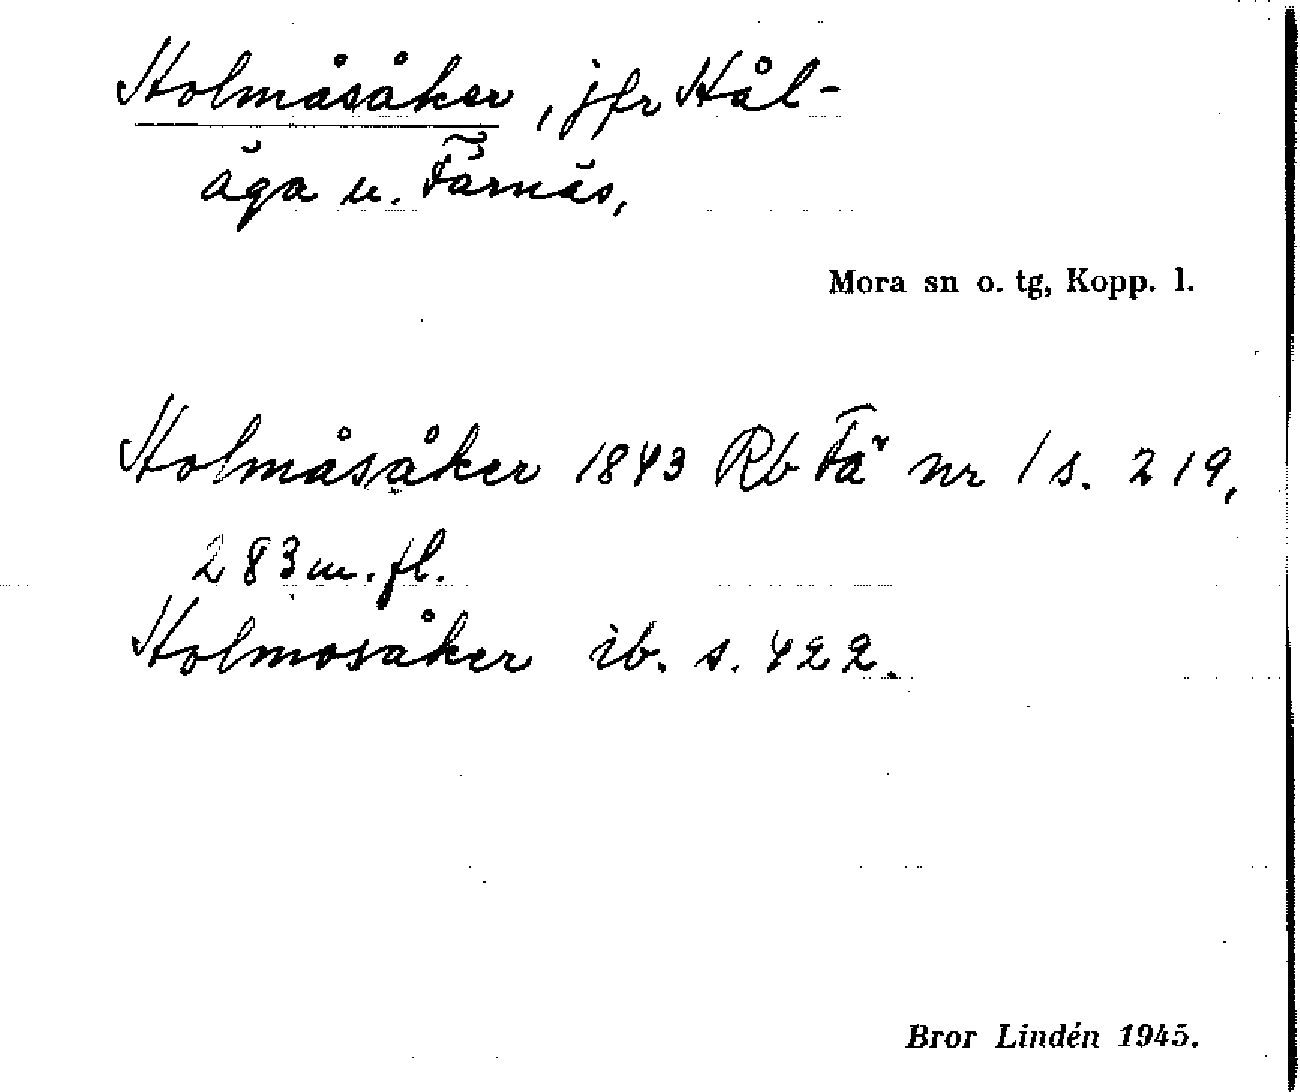 Holmåsåker, jfr Hål-
äga u. Färnäs,
Mora sn o. tg, Kopp. l.
Holmåsåker 1843 Rb Fä nr 1 s. 219,
283 m. fl.
Holmosåker ib. s. 422.
Bror Lindén 1945.